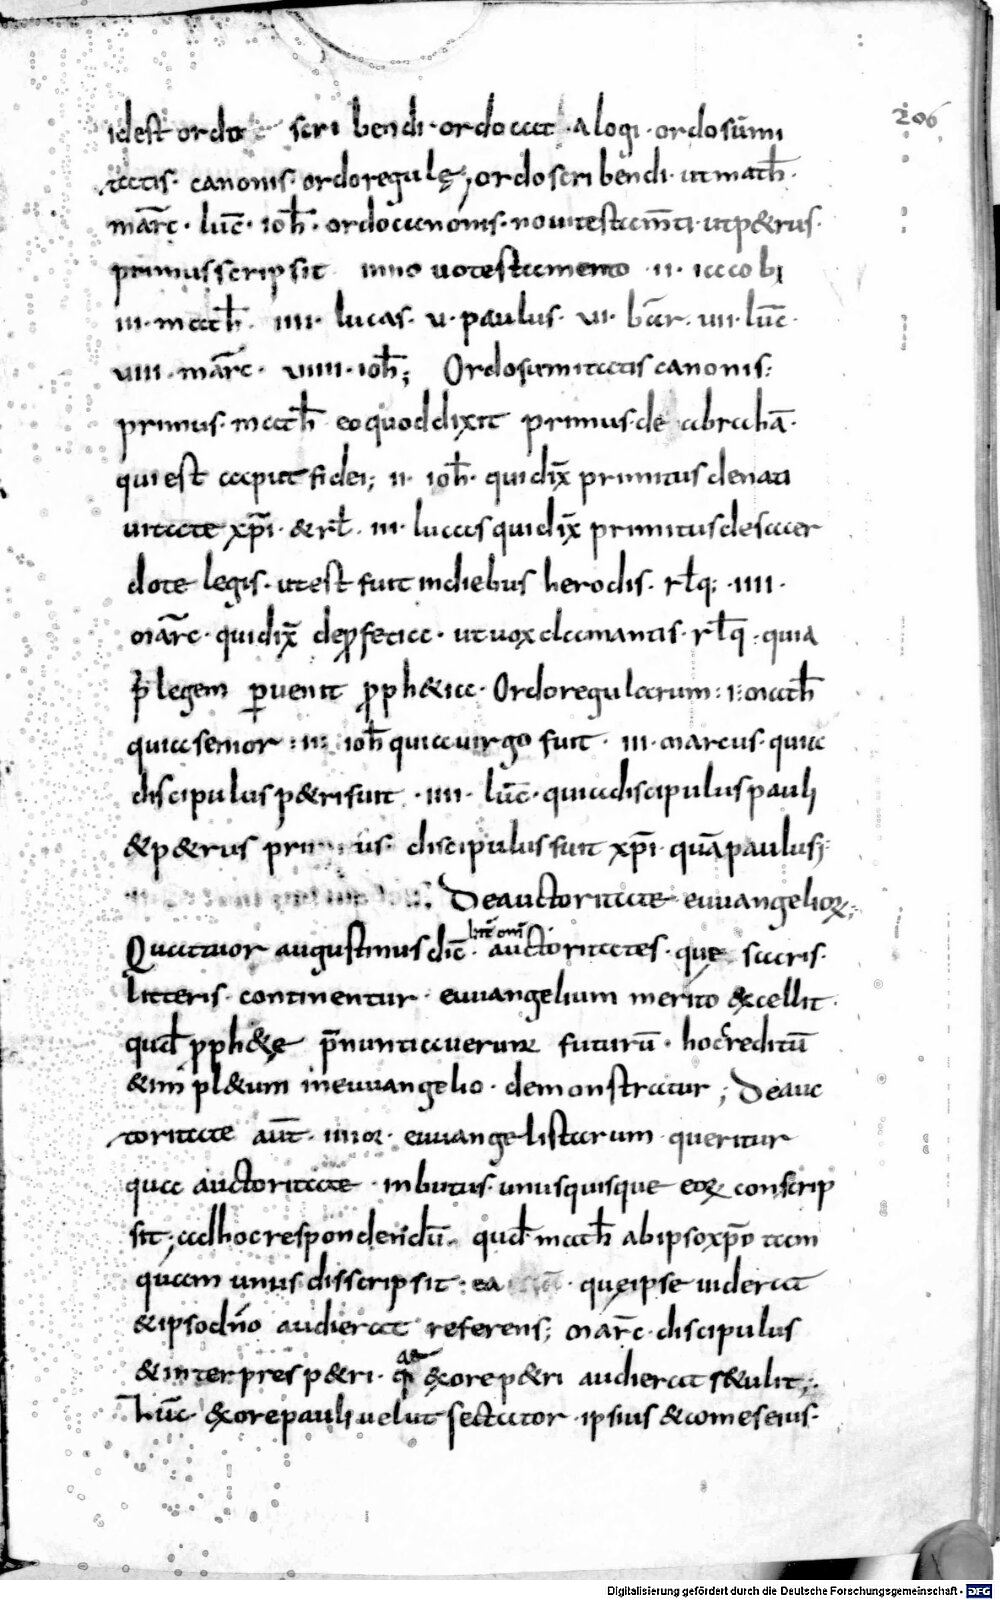 206
idest ordo scribendi · ordo catalogi · ordo sūmi
tatis · canonis · ordo regulę, ordo scribendi · ut math̄ ·
mar̄c · luc̄ · ioh̄ · ordo canonis · noui testam̄ti · ut p&rus ·
primus scripsit in nouo testamento · ii · iacobi
iii · math̄ · iiii · lucas · u · paulus · ui · bar̄ · uii · luc̄ ·
uiii · mar̄c · uiiii · ioh̄; Ordo sumitatis canonis:
primus · math̄ eo quod dixit primus · de abrahā ·
qui est caput fidei; ii · ioh̄ · qui dix̄ primitus de nati
uitate xp̄i · & rł · iii · lucas qui dix̄ primitus de sacer
dote legis · ut est fuit in diebus herodis · rłq; · iiii ·
mar̄c · qui dix̄ de ꝓfetia · ut uox clamantis · rłq̄ · quia
p̄ legem ꝑuenit ꝓph&ia · Ordo regularum: i: math̄
quia senior : ii: ioh̄ quia uirgo fuit · iii · marcus · quia
discipulus p&ri fuit · iiii · luc̄ · quia discipulus pauli
& p&rus primus · discipulus fuit xp̄i · quā paulus;
De auctoritate euuangelioꝝ;
Quattuor augustinus dic̄ · auctoritates · quę sacris ·
litteris · continentur · euuangelium merito excellit ·
qud̄ ꝓph&ę p̄nuntiauerunt futurū · hoc reditū
& im̄pl&um in euuangelio · demonstratur; De auc
toritate aūt · iiiior · euuangelistarum queritur
qua auctoritate · inbutus · unusquisque eoꝝ conscrip
sit; ad hoc respondendū · qud̄ math̄ ab ipso xp̄o tam
quam unus disscripsit · ea · quę ipse uiderat
& ipso dn̄o audierat referens; mar̄c · discipulus
& interpres p&ri · ex ore p&ri audierat r&ulit;
Luc̄ · ex ore pauli uelut sectator · ipsius & comes eius ·
Digitalisierung gefördert durch die Deutsche Forschungsgemeinschaft - DFG